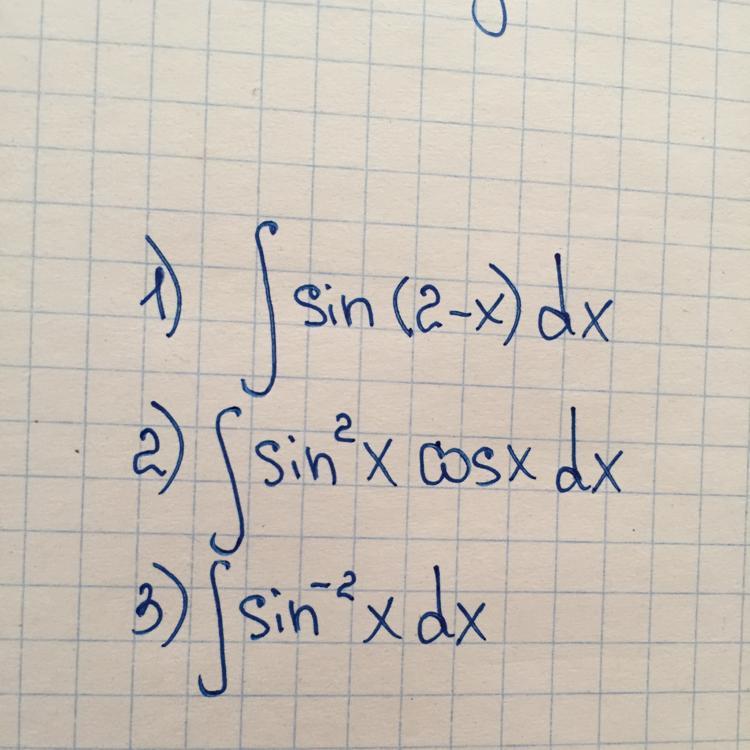 1) ∫ sin (2-x) dx
2) ∫ sin²x cosx dx
3) ∫ sin⁻²x dx